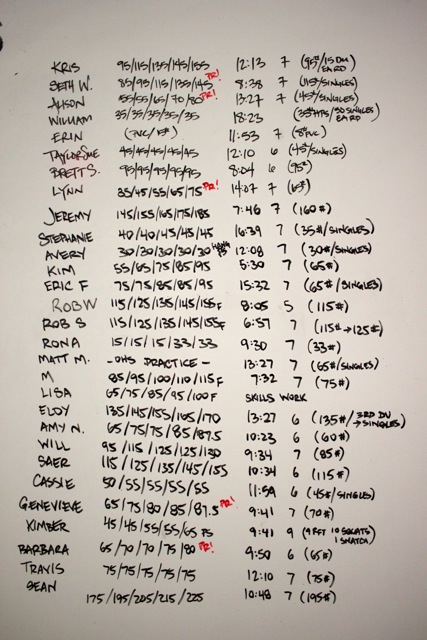 KRIS 95/115/135/145/155 12:13 7 (95#/15 DU EA RD)
SETH W. 85/95/115/135/145 PR! 8:38 7 (115#/SINGLES)
ALISON 55/55/65/70/80 PR! 13:27 7 (45#/SINGLES)
WILLIAM 35/35/35/35/35 18:23 (35#/ /50 SINGLES EA RD)
ERIN (PVC/15#) 11:53 7 (8# PVC)
TAYLOR SUE 45/45/45/45/45 12:10 6 (45#/SINGLES)
BRETT S. 95/95/95/95/95 8:04 6 (95#)
LYNN 35/45/55/65/75 PR! 14:07 7 (65#)
JEREMY 145/155/165/175/185 7:46 7 (160#)
STEPHANIE 40/40/45/45/45 16:39 7 (35#/SINGLES)
AVERY 30/30/30/30/30 12:08 7 (30#/SINGLES)
KIM 55/65/75/85/95 5:30 7 (65#)
ERIC F 75/75/85/85/95 15:32 7 (65#/SINGLES)
ROB W 115/125/135/145/155F 8:05 5 (115#)
ROB S 115/125/135/145/155F 6:57 7 (115#→125#)
RONA 15/15/15/33/33 9:30 7 (33#)
MATT M. - OHS PRACTICE - 13:27 7 (65#/SINGLES)
M 85/95/100/110/115F 7:32 7 (75#)
LISA 65/75/85/95/100F SKILLS WORK
ELOY 135/145/155/165/170 13:27 6 (135#/3RD DU → SINGLES)
AMY N. 65/75/75/85/87.5 10:23 6 (60#)
WILL 95/115/125/125/130 9:34 7 (85#)
SAER 115/125/135/145/155 10:34 6 (115#)
CASSIE 50/55/55/55/55 11:59 6 (45#/SINGLES)
GENEVIEVE 65/75/80/85/87.5 PR! 9:41 7 (70#)
KIMBER 45/45/55/55/65 75 9:41 9 (9 RFT 10 SQUATS 1 SNATCH)
BARBARA 65/70/70/75/80 PR! 9:50 6 (65#)
TRAVIS 75/75/75/75/75 12:10 7 (75#)
SEAN 175/195/205/215/225 10:48 7 (195#)